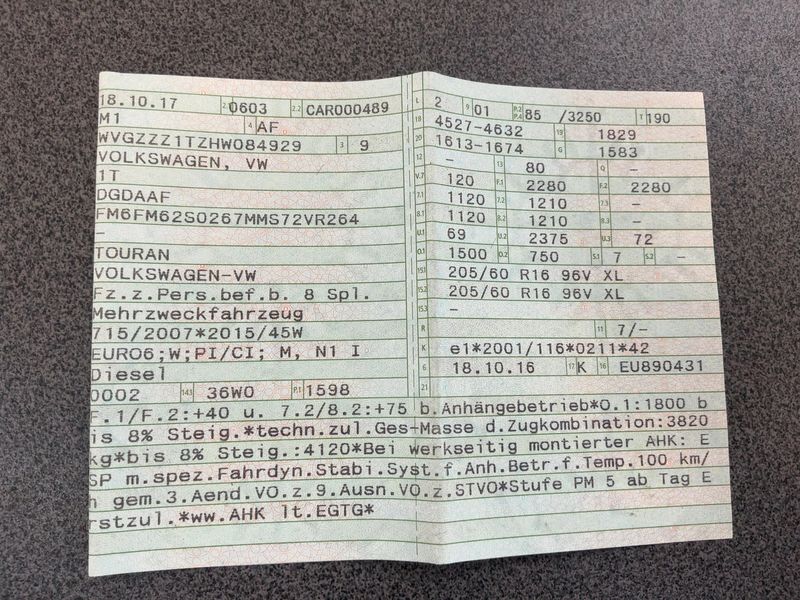 18.10.17 2.1 0603 2.2 CAR000489
M1 4 AF
WVGZZZ1TZHW084929 3 9
VOLKSWAGEN, VW
1T
DGDAAF
FM6FM62S0267MMS72VR264
–
TOURAN
VOLKSWAGEN-VW
Fz.z.Pers.bef.b. 8 Spl.
Mehrzweckfahrzeug
715/2007*2015/45W
EURO6;W;PI/CI; M, N1 I
Diesel
0002 14.1 36W0 P.1 1598
L 2 9 01 P.2 P.4 85 /3250 T 190
18 4527-4632 19 1829
20 1613-1674 G 1583
12 – 13 80 Q –
V.7 120 F.1 2280 F.2 2280
7.1 1120 7.2 1210 7.3 –
8.1 1120 8.2 1210 8.3 –
U.1 69 U.2 2375 U.3 72
O.1 1500 O.2 750 S.1 7 S.2 –
15.1 205/60 R16 96V XL
15.2 205/60 R16 96V XL
15.3 –
R 11 7/-
K e1*2001/116*0211*42
6 18.10.16 17 K 16 EU890431
21
F.1/F.2:+40 u. 7.2/8.2:+75 b.Anhängebetrieb*O.1:1800 b
is 8% Steig.*techn.zul.Ges-Masse d.Zugkombination:3820
kg*bis 8% Steig.:4120*Bei werkseitig montierter AHK: E
SP m.spez.Fahrdyn.Stabi.Syst.f.Anh.Betr.f.Temp.100 km/
h gem.3.Aend.VO.z.9.Ausn.VO.z.STVO*Stufe PM 5 ab Tag E
rstzul.*ww.AHK lt.EGTG*